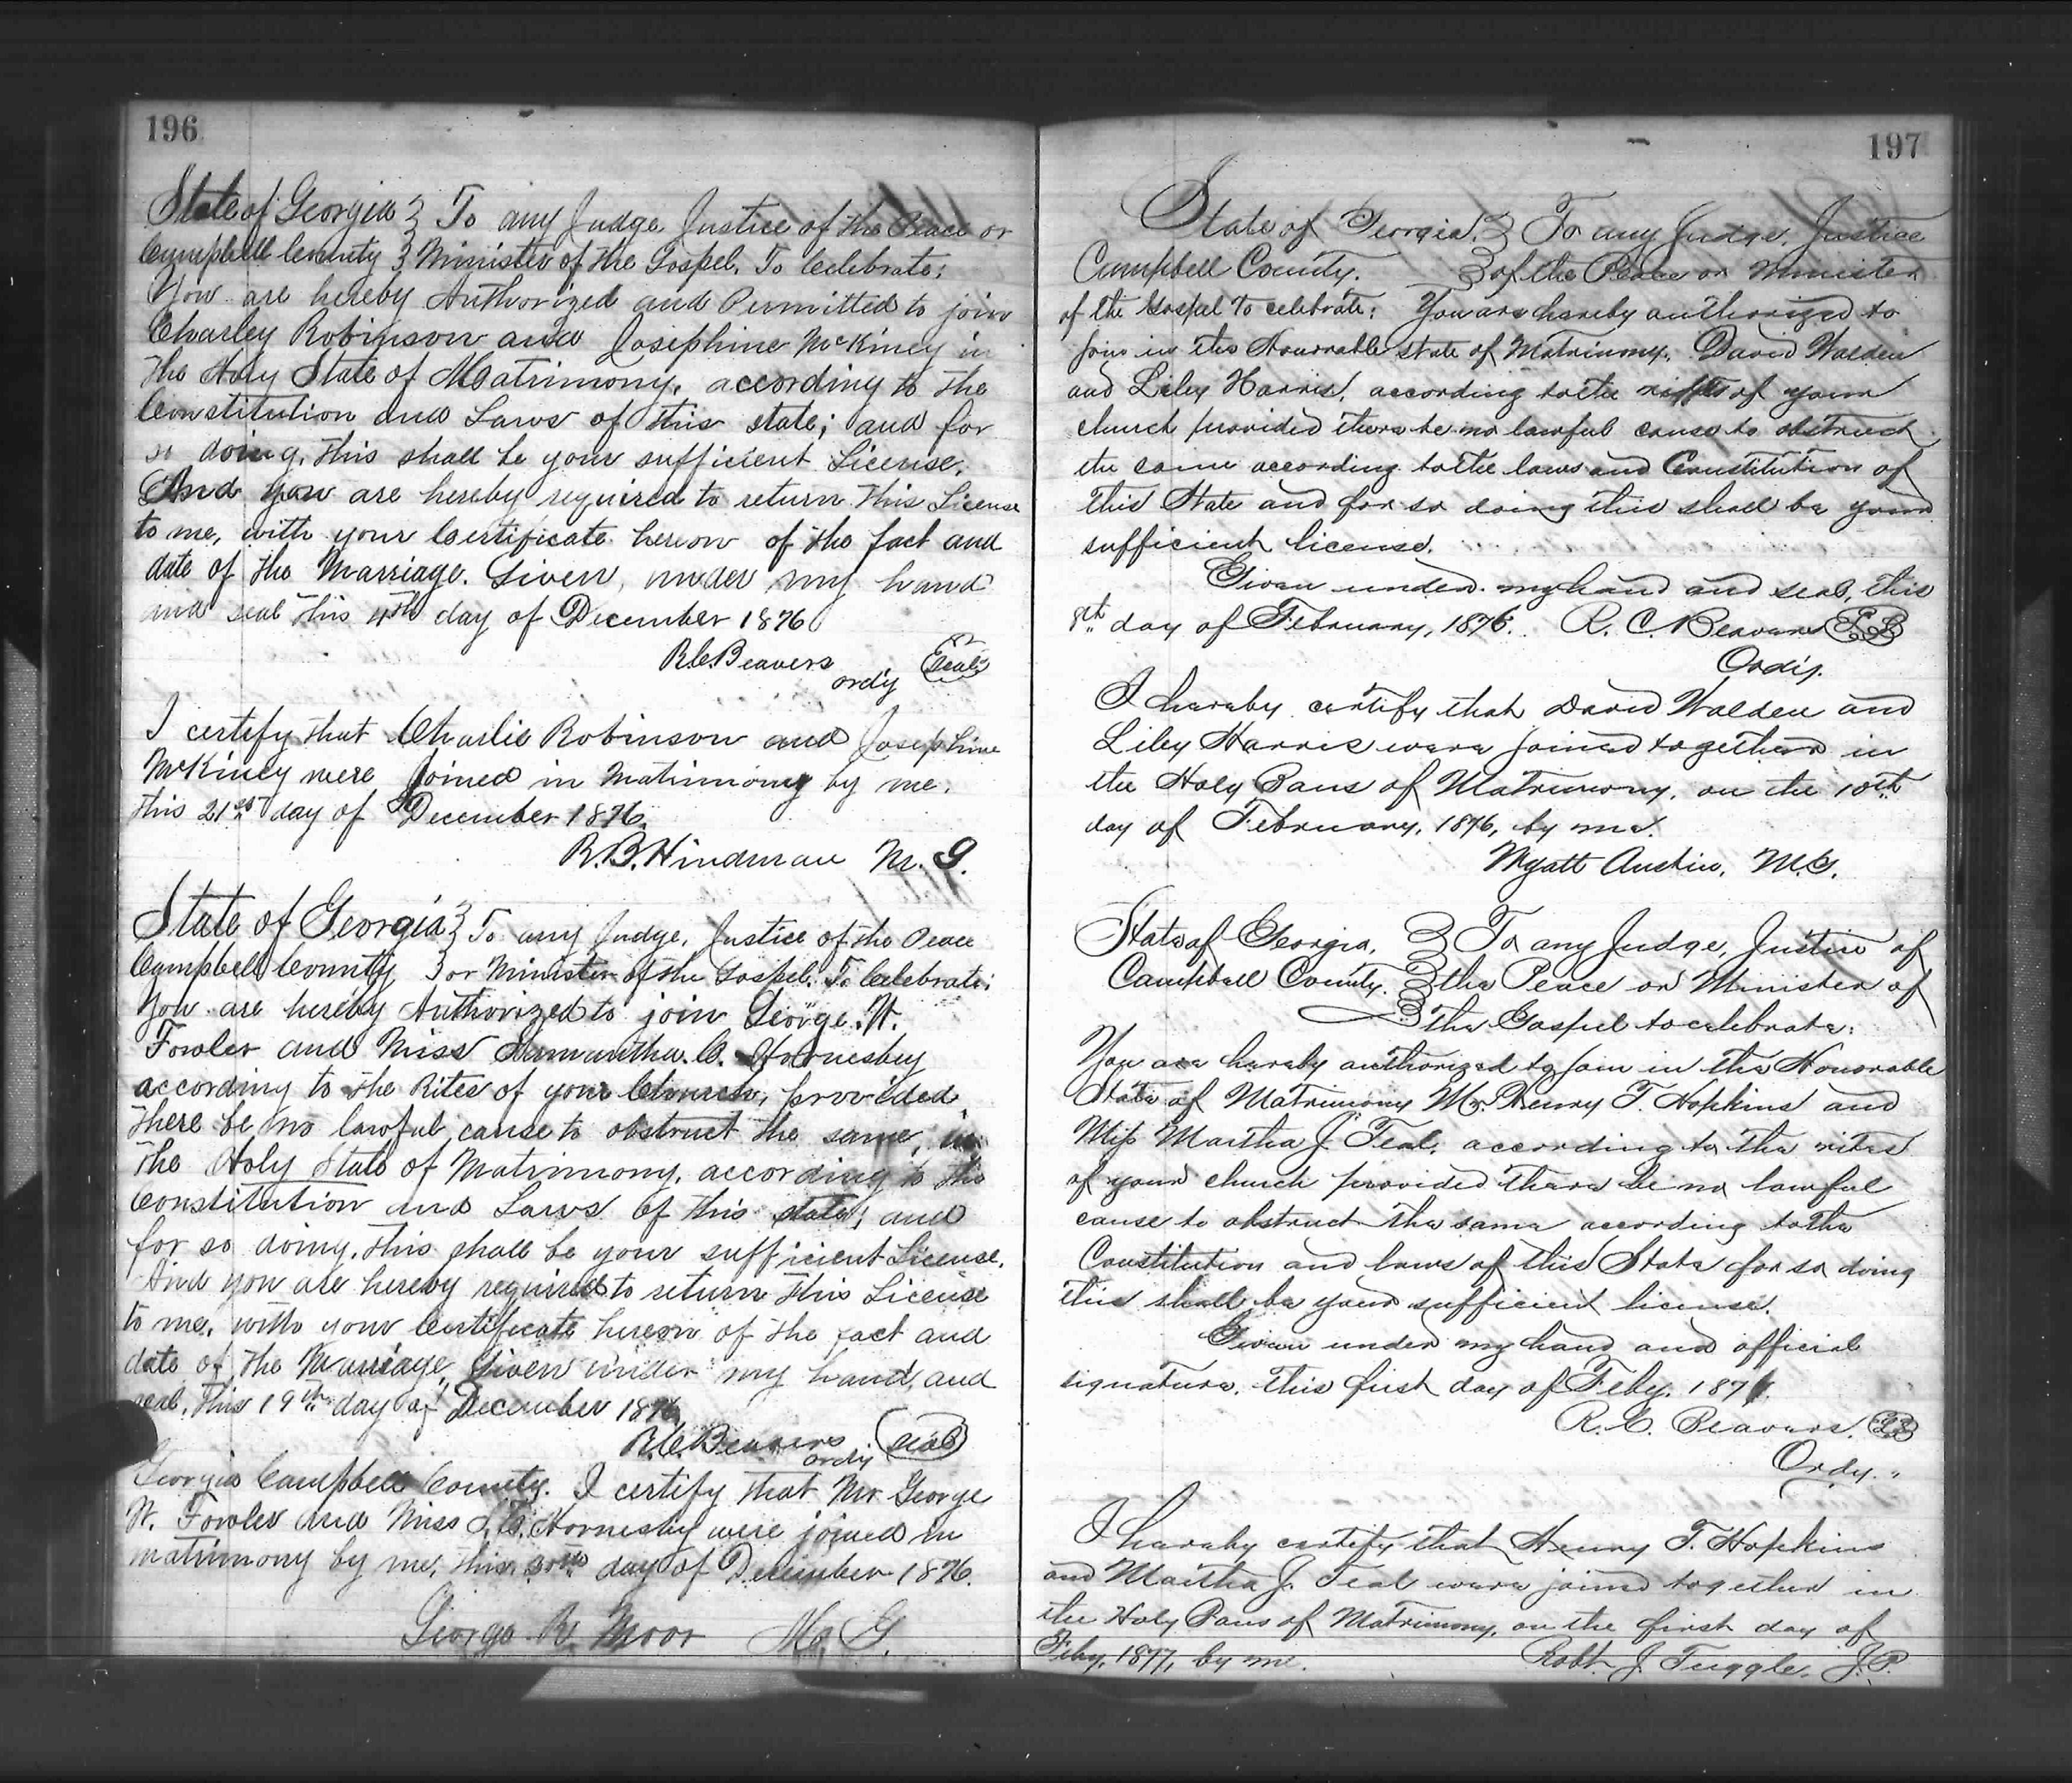 196
State of Georgia } To any Judge Justice of the Peace or
Campbell County } Minister of the Gospel. To Celebrate:
You are hereby Authorized and Permitted to join
Charley Robinson and Josephine McKiney in
the Holy State of Matrimony. according to the
Constitution and Laws of this state; and for
so doing, this shall be your sufficient License.
And you are hereby required to return this License
to me, with your Certificate hereon of the fact and
date of the Marriage. Given, under my hand
and seal this 4th day of December 1876
R.C. Beavers Seal
ordy
I certify that Charlie Robinson and Josephine
McKiney were joined in Matrimony by me.
this 21st day of December 1876.
R.B. Hindman M. G.
State of Georgia } To any Judge, Justice of the Peace
Campbell County } or Minister of the Gospel. To Celebrate:
You are hereby Authorized to join George. W.
Fowler and Miss Hornesby
according to the Rites of your Church, provided,
there be no lawful cause to obstruct the same, in
the Holy State of Matrimony, according to the
Constitution and Laws of this state; and
for so doing, this shall be your sufficient License.
And you are hereby required to return this License
to me, with your Certificate hereon of the fact and
date of the Marriage, Given under my hand, and
seal. This 19th day of December 1876
R.C. Beavers seal
ordy
Georgia Campbell County. I certify that Mr. George
W. Fowler and Miss Hornesby were joined in
matrimony by me, this day of December 1876.
George R. Moor M. G.
197
State of Georgia. } To any Judge, Justice
Campbell County. } of the Peace or Minister
of the Gospel to celebrate: You are hereby authorized to
join in the Honorable state of Matrimony. David Walden
and Liley Harris, according to the of your
church provided there be no lawful cause to obstruct
the same according to the laws and Constitution of
this State and for so doing this shall be your
sufficient license.
Given under my hand and seal, this
8th day of February, 1876. R. C. Beavers
Ordy.
I hereby certify that David Walden and
Liley Harris were joined together in
the Holy Bans of Matrimony, on the 10th
day of February, 1876, by me.
Wyatt Austin, M.G.
State of Georgia, } To any Judge, Justice of
Campbell County. } the Peace or Minister of
the Gospel to celebrate:
You are hereby authorized to join in the Honorable
State of Matrimony Mr. Henry T. Hopkins and
Miss Martha J. Teal, according to the rites
of your church provided there be no lawful
cause to obstruct the same according to the
Constitution and laws of this State for so doing
this shall be your sufficient license.
Given under my hand and official
signature, this first day of Feby. 1877.
R. C. Beavers.
Ordy.
I hereby certify that Henry T. Hopkins
and Martha J. Teal were joined together in
the Holy Bans of Matrimony, on the first day of
Feby, 1877, by me. Robt. J. Tuggle, J.P.